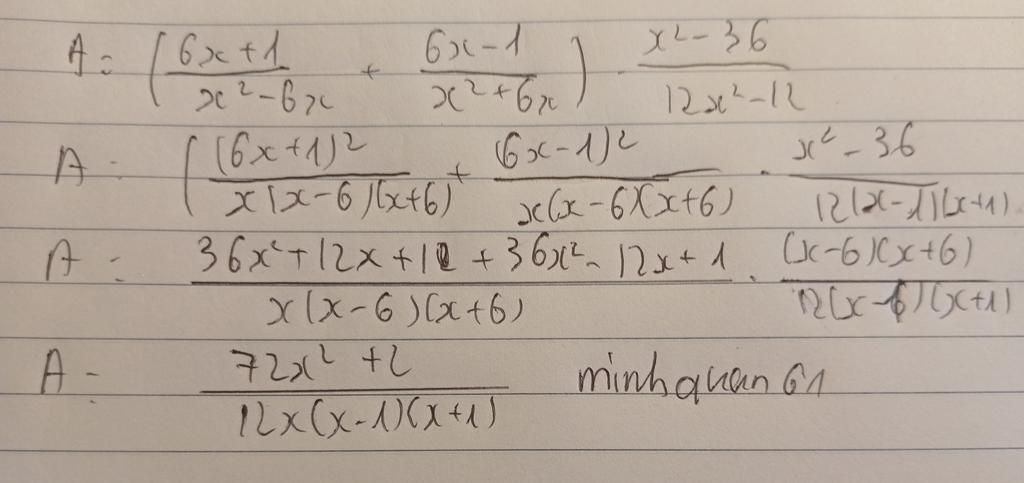 A = ( (6x+1)/(x²-6x) + (6x-1)/(x²+6x) ) · (x²-36)/(12x²-12)
A = ( (6x+1)²/(x(x-6)(x+6)) + (6x-1)²/(x(x-6)(x+6)) · (x²-36)/(12(x-1)(x+1))
A = (36x²+12x+1 + 36x²-12x+1)/(x(x-6)(x+6)) · ((x-6)(x+6))/(12(x-1)(x+1))
A = (72x²+2)/(12x(x-1)(x+1)) minhquan61